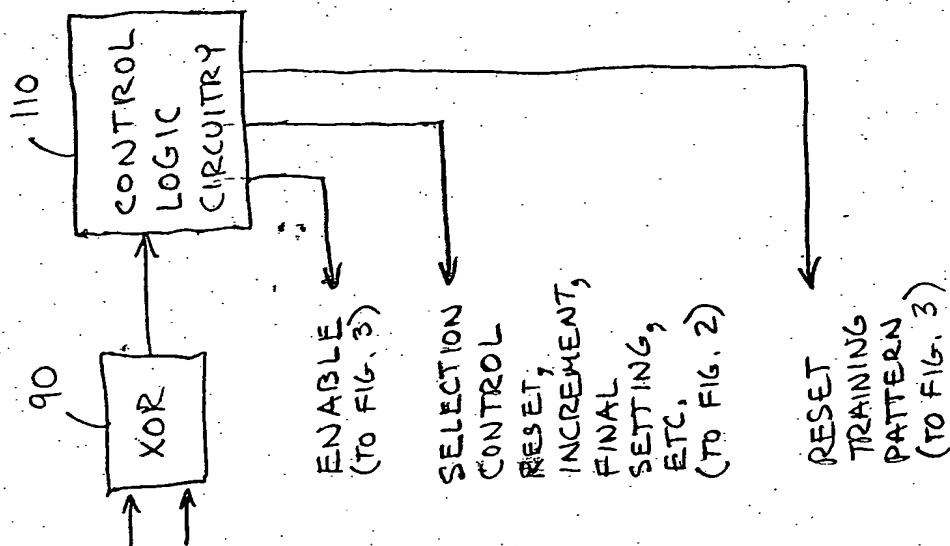 110
CONTROL
LOGIC
CIRCUITRY
90
XOR
ENABLE
(TO FIG. 3)
SELECTION
CONTROL
RESET,
INCREMENT,
FINAL
SETTING,
ETC.
(TO FIG. 2)
RESET
TRAINING
PATTERN
(TO FIG. 3)